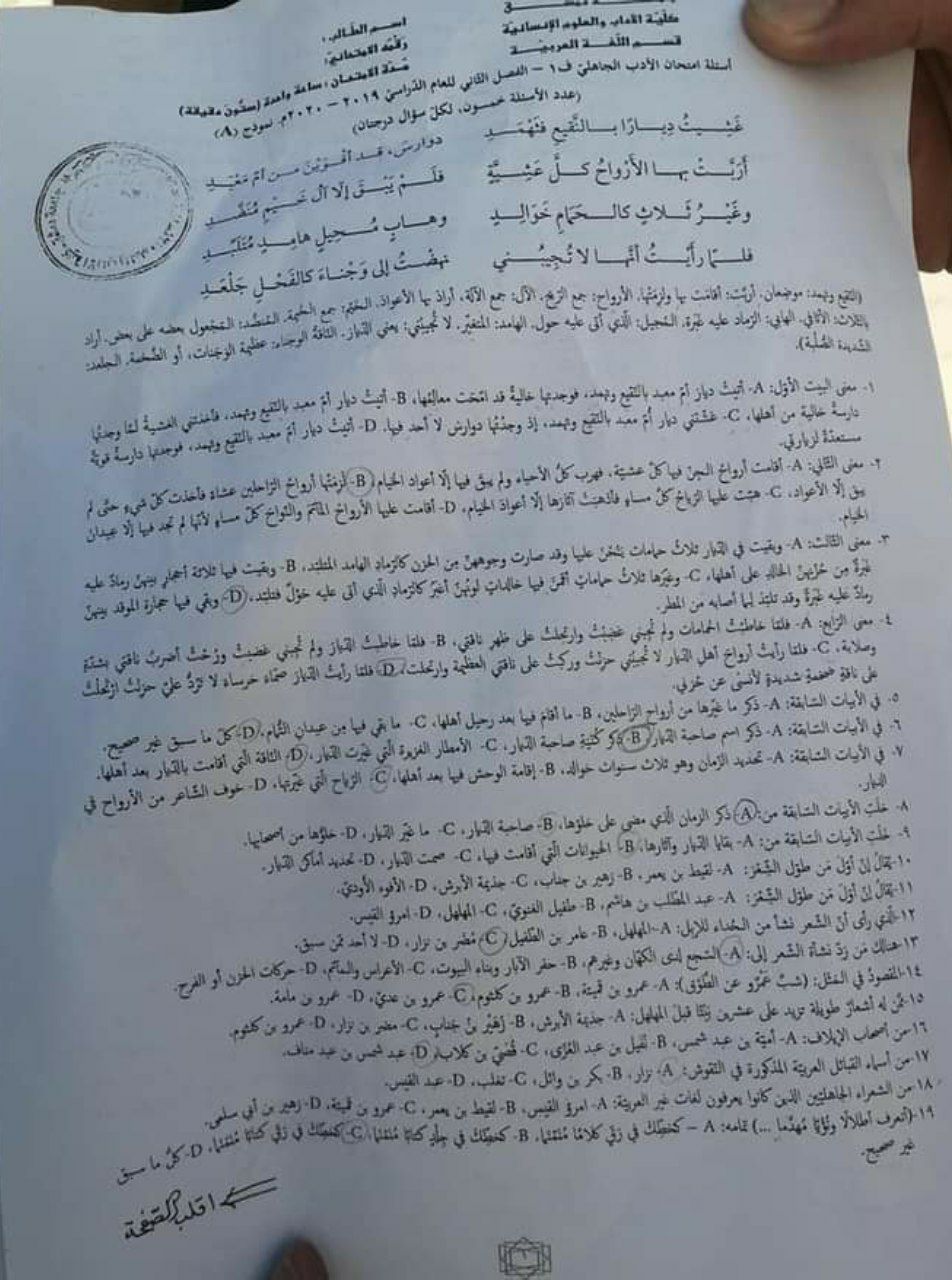 كلية الآداب والعلوم الإنسانية
قسم اللغة العربية
اسم الطالب:
رقمه الامتحاني:
مدة الامتحان: ساعة واحدة (ستون دقيقة)
أسئلة امتحان الأدب الجاهلي ف١ – الفصل الثاني للعام الدراسي ٢٠١٩ – ٢٠٢٠م. نموذج (A)
(عدد الأسئلة خمسون، لكل سؤال درجتان)
غَشِيتُ دِيارًا بالنَّقيعِ فثَهْمَدِ دوارسَ، قد أقْوَيْنَ من أمّ مَعْبَدِ
أرَبَّتْ بها الأرْواحُ كلَّ عَشِيَّةٍ فلَمْ يَبْقَ إلّا آلُ خَيمٍ مُنَضَّدِ
وغَيْرُ ثَلاثٍ كالحَمَامِ خَوَالِدٍ وهابٍ مُحِيلٍ هامِدٍ مُتَلَبِّدِ
فلمّا رأيْتُ أنّها لا تُجِيبُني نهضْتُ إلى وَجْناءَ كالفَحْلِ جَلْعَدِ
(النقيع وثهمد: موضعان. أربّت: أقامت بها ولزمتها. الأرواح: جمع الريح. الآل: جمع الآلة، أراد بها الأعواد. الخيم: جمع الخيمة. المنضد: المجعول بعضه على بعض. أراد
بالثلاث: الأثافي. الهابي: الرماد عليه غبرة. المحيل: الذي أتى عليه حول. الهامد: المتغير. لا تجيبني: يعني الديار. الناقة الوجناء: عظيمة الوجنات، أو الضخمة. الجلعد:
الشديدة الصلبة).
١- معنى البيت الأول: A- أتيت ديار أم معبد بالنقيع وثهمد، فوجدتها خالية قد امّحت معالمها، B- أتيت ديار أم معبد بالنقيع وثهمد، فأخذتني الغشية لما وجدتها
دارسة خالية من أهلها، C- غشتني ديار أم معبد بالنقيع وثهمد، إذ وجدتها دوارس لا أحد فيها. D- أتيت ديار أم معبد بالنقيع وثهمد، فوجدتها دارسة قوية
مستعدة لزيارتي.
٢- معنى الثاني: A- أقامت أرواح الجن فيها كل عشية، فهرب كل الأحياء ولم يبق فيها إلا أعواد الخيام، B- لزمتها أرواح الراحلين عشاء فأخذت كل شيء حتى لم
يبق إلا الأعواد، C- هبت عليها الرياح كل مساء فأذهبت آثارها إلا أعواد الخيام، D- أقامت عليها الأرواح المآتم والنواح كل مساء لأنها لم تجد فيها إلا عيدان
الخيام.
٣- معنى الثالث: A- وبقيت في الديار ثلاث حمامات ينحن عليها وقد صارت وجوههن من الحزن كالرماد الهامد المتلبد، B- وبقيت فيها ثلاثة أحجار بينهن رماد عليه
غبرة من حزنهن الخالد على أهلها، C- وغيرها ثلاث حمامات أقمن فيها خالدات لونهن أغبر كالرماد الذي أتى عليه حول فتلبد، D- وبقي فيها حجارة الموقد بينهن
رماد عليه غبرة وقد تلبد لما أصابه من المطر.
٤- معنى الرابع: A- فلما خاطبت الحمامات ولم تجبني غضبت وارتحلت على ظهر ناقتي، B- فلما خاطبت الديار ولم تجبني غضبت ورحت أضرب ناقتي بشدة
وصلابة، C- فلما رأيت أرواح أهل الديار لا تجيبني حزنت وركبت على ناقتي العظيمة وارتحلت، D- فلما رأيت الديار صماء خرساء لا ترد علي حزنت ارتحلت
على ناقة ضخمة شديدة لأنسى عن حزني.
٥- في الأبيات السابقة: A- ذكر ما غيرها من أرواح الراحلين، B- ما أقام فيها بعد رحيل أهلها، C- ما بقي فيها من عيدان الثمام، D- كل ما سبق غير صحيح.
٦- في الأبيات السابقة: A- ذكر اسم صاحبة الديار، B- ذكر كنية صاحبة الديار، C- الأمطار الغزيرة التي غيرت الديار، D- الناقة التي أقامت بالديار بعد أهلها.
٧- في الأبيات السابقة: A- تحديد الزمان وهو ثلاث سنوات خوالد، B- إقامة الوحش فيها بعد أهلها، C- الرياح التي غيرتها، D- خوف الشاعر من الأرواح في
الديار.
٨- خلت الأبيات السابقة من: A- ذكر الزمان الذي مضى على خلوها، B- صاحبة الديار، C- ما غير الديار، D- خلوها من أصحابها.
٩- خلت الأبيات السابقة من: A- بقايا الديار وآثارها، B- الحيوانات التي أقامت فيها، C- صمت الديار، D- تحديد أماكن الديار.
١٠- يقال إن أول من طول الشعر: A- لقيط بن يعمر، B- زهير بن جناب، C- جذيمة الأبرش، D- الأفوه الأودي.
١١- يقال إن أول من طول الشعر: A- عبد المطلب بن هاشم، B- طفيل الغنوي، C- المهلهل، D- امرؤ القيس.
١٢- الذي رأى أن الشعر نشأ من الحداء للإبل: A- المهلهل، B- عامر بن الطفيل، C- مضر بن نزار، D- لا أحد ممن سبق.
١٣- هنالك من رد نشأة الشعر إلى: A- السجع لدى الكهان وغيرهم، B- حفر الآبار وبناء البيوت، C- الأعراس والمآتم، D- حركات الحزن أو الفرح.
١٤- المقصود في المثل: (شب عمرو عن الطوق): A- عمرو بن قميئة، B- عمرو بن كلثوم، C- عمرو بن عدي، D- عمرو بن مامة.
١٥- ممن له أشعار طويلة تزيد على عشرين بيتا قبل المهلهل: A- جذيمة الأبرش، B- زهير بن جناب، C- مضر بن نزار، D- عمرو بن كلثوم.
١٦- من أصحاب الإيلاف: A- أمية بن عبد شمس، B- نفيل بن عبد العزى، C- قصي بن كلاب، D- عبد شمس بن عبد مناف.
١٧- من أسماء القبائل العربية المذكورة في النقوش: A- نزار، B- بكر بن وائل، C- تغلب، D- عبد القيس.
١٨- من الشعراء الجاهليين الذين كانوا يعرفون لغات غير العربية: A- امرؤ القيس، B- لقيط بن يعمر، C- عمرو بن قميئة، D- زهير بن أبي سلمى.
١٩- (أتعرف أطلالا ونؤيا مهدما ...) تمامه: A- كخطك في رق كلاما منمنما، B- كخطك في جلد كتابا منمنما، C- كخطك في رق كتابا منمنما، D- كل ما سبق
غير صحيح.
اقلب الصفحة
١